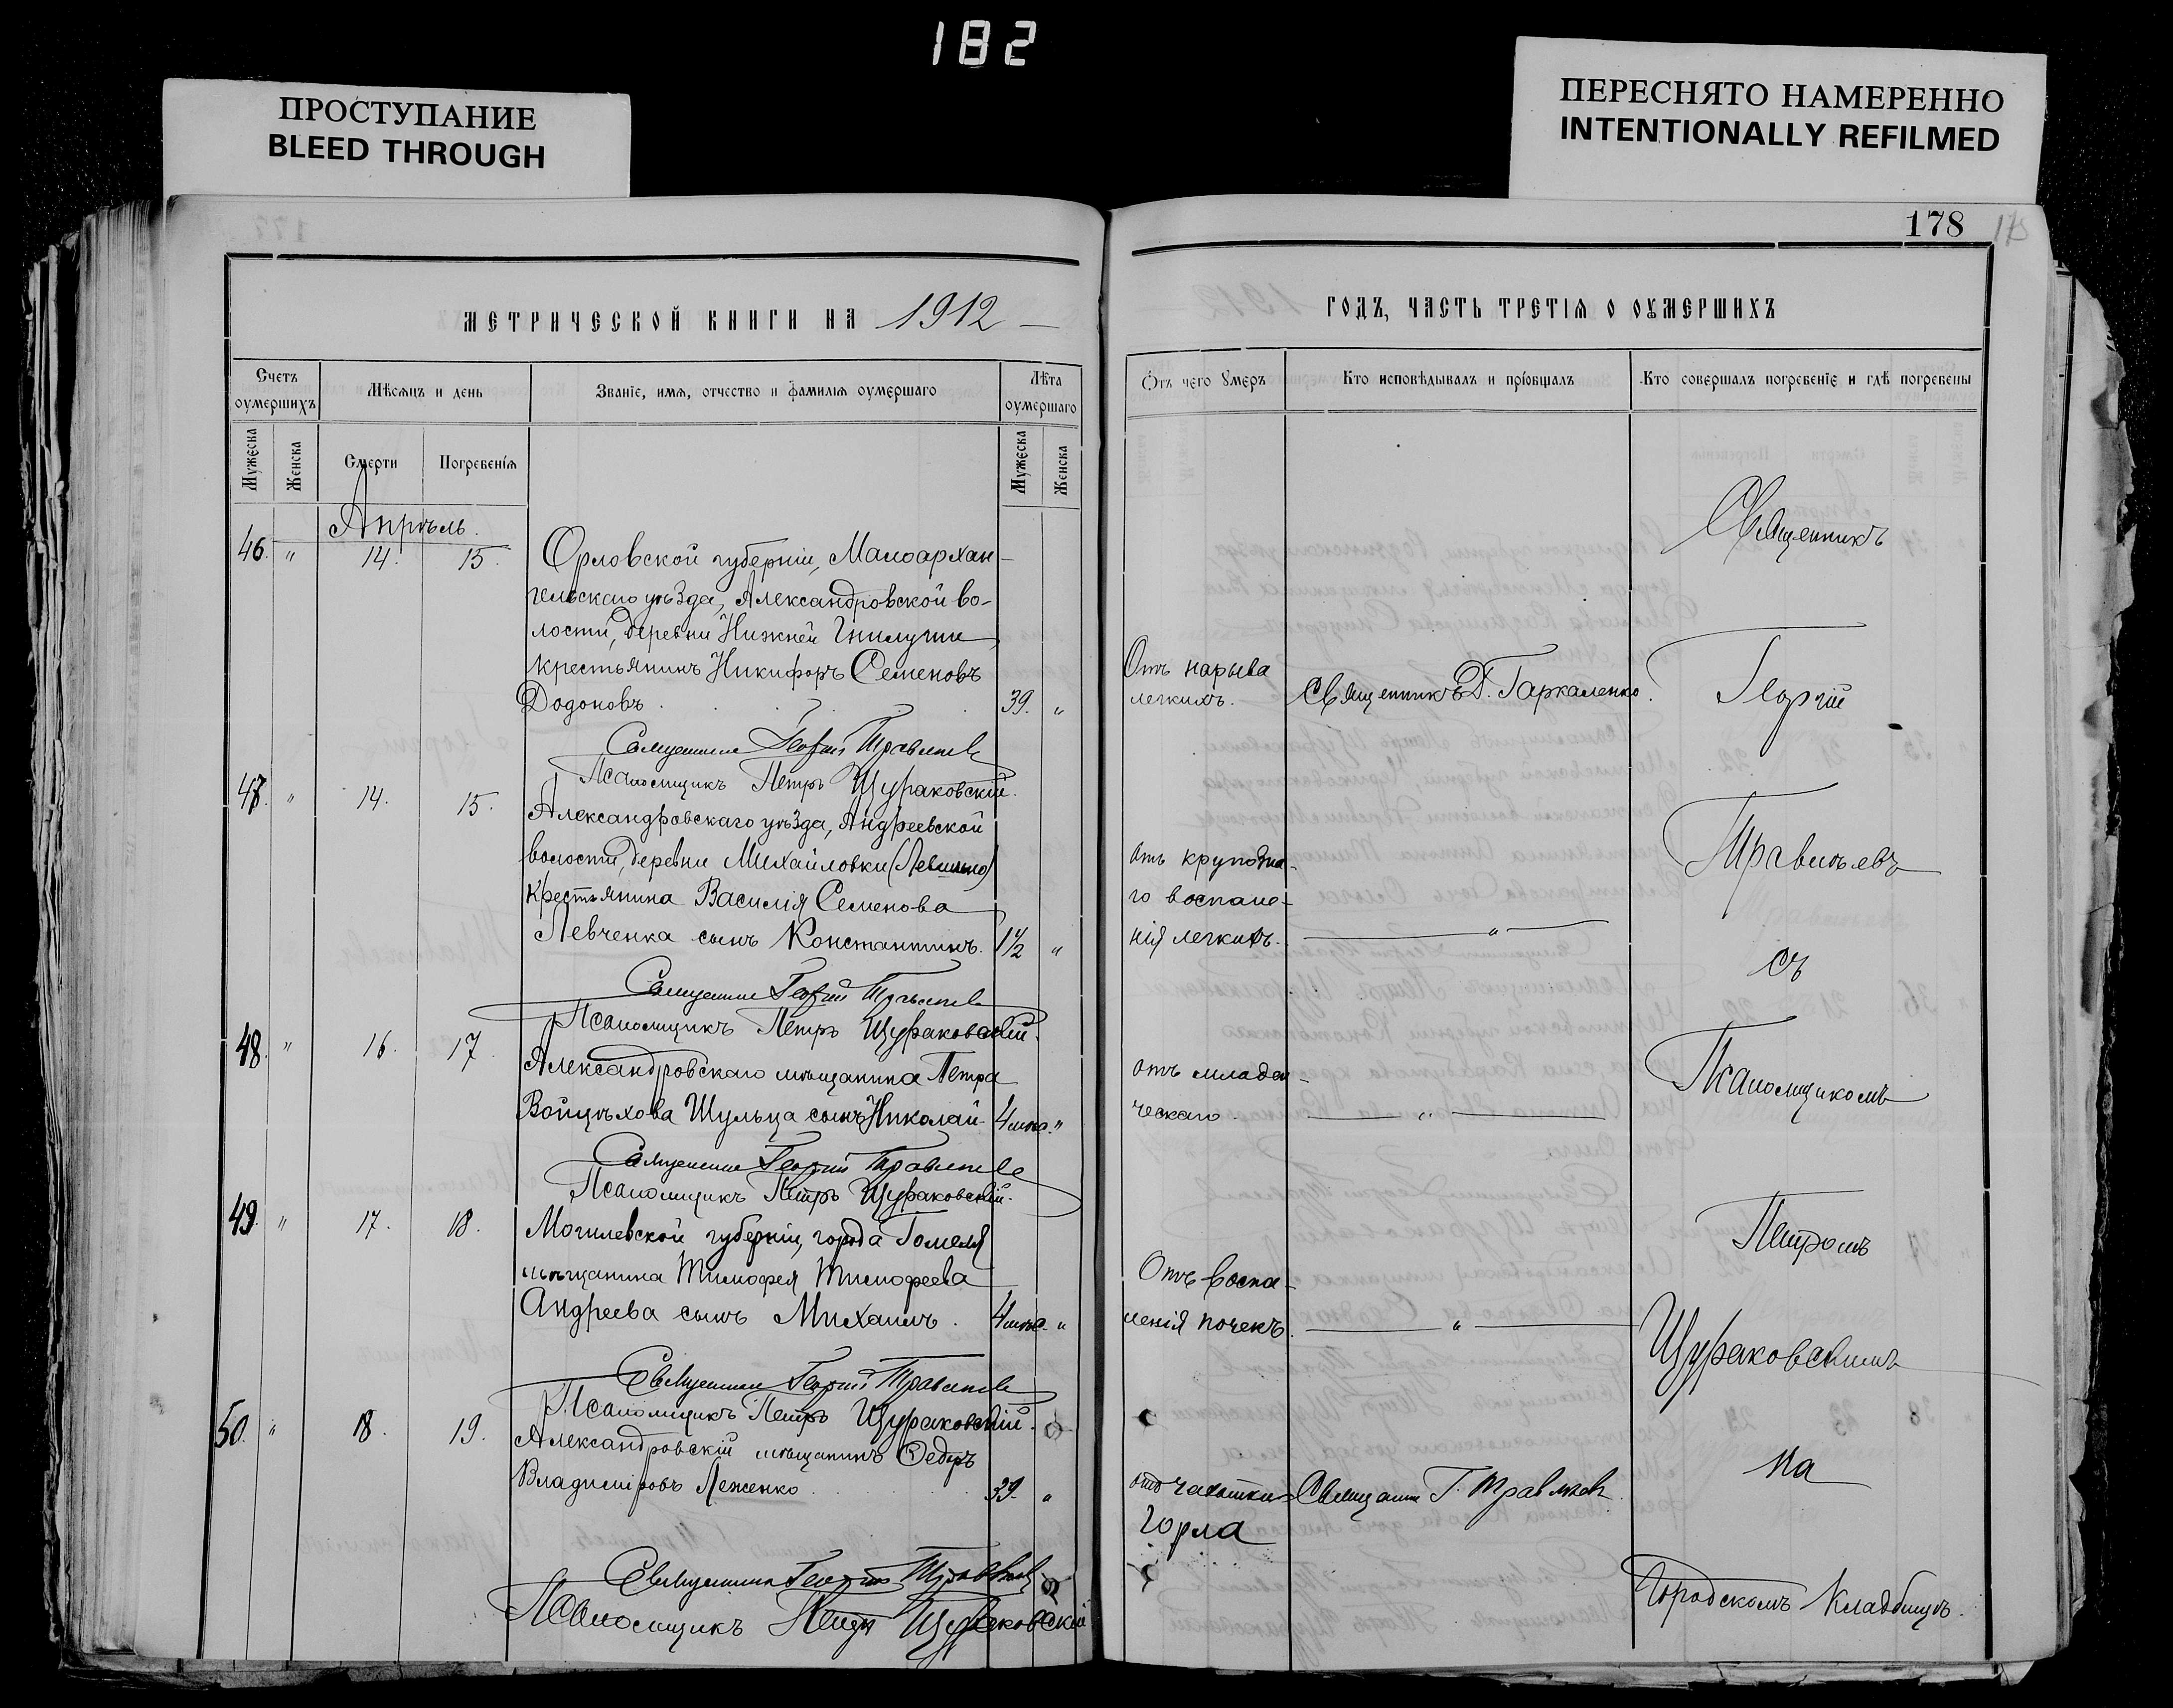 182
ПРОСТУПАНИЕ
BLEED THROUGH
ПЕРЕСНЯТО НАМЕРЕННО
INTENTIONALLY REFILMED
178
МЕТРИЧЕСКОЙ КНИГИ НА 1912
Счетъ оумершихъ
Мѣсяцъ и день
Званіе, имя, отчество и фамилія оумершаго
Лѣта оумершаго
Мужеска
Женска
Смерти
Погребенія
Мужеска
Женска
Апрѣль.
46. " 14. 15. Орловской губерніи, Малоархан-
гельскаго уѣзда, Александровской во-
лости, деревни Нижней Гнилуши
крестьянинъ Никифоръ Семеновъ
Додоновъ . 39. "
Священникъ Георгій Травлѣевъ
Псаломщикъ Петръ Щураковскій.
47. " 14. 15. Александровскаго уѣзда, Андреевской
волости, деревни Михайловки (Левшино)
крестьянина Василія Семенова
Левченка сынъ Константинъ. 1 1/2 "
Священникъ Георгій Травлѣевъ
Псаломщикъ Петръ Щураковскій.
48. " 16. 17. Александровскаго мѣщанина Петра
Войцѣхова Шульца сынъ Николай 4 мѣс. "
Священникъ Георгій Травлѣевъ
Псаломщикъ Петръ Щураковскій.
49. " 17. 18. Могилевской губерніи, города Гомеля
мѣщанина Тимофея Тимофеева
Андреева сынъ Михаилъ. 4 мѣс. "
Священникъ Георгій Травлѣевъ
Псаломщикъ Петръ Щураковскій.
50. " 18. 19. Александровскій мѣщанинъ Ѳедоръ
Владиміровъ Леженко . 39. "
Священникъ Георгій Травлѣевъ
Псаломщикъ Петръ Щураковскій
ГОДЪ, ЧАСТЬ ТРЕТІЯ О ОУМЕРШИХЪ
Отъ чего умеръ
Кто исповѣдывалъ и пріобщалъ
Кто совершалъ погребеніе и гдѣ погребены
Отъ нарыва
легкихъ.
Священникъ Д. Гаркаленко.
отъ крупозна-
го воспале-
нія легкихъ. "
отъ младен-
ческаго. "
Отъ воспа-
ленія почекъ. "
отъ чахотки
горла
Священникъ Г. Травлѣевъ.
Священникъ
Георгій
Травлѣевъ
съ
Псаломщикомъ
Петромъ
Щураковскимъ
на
Городскомъ Кладбищѣ.